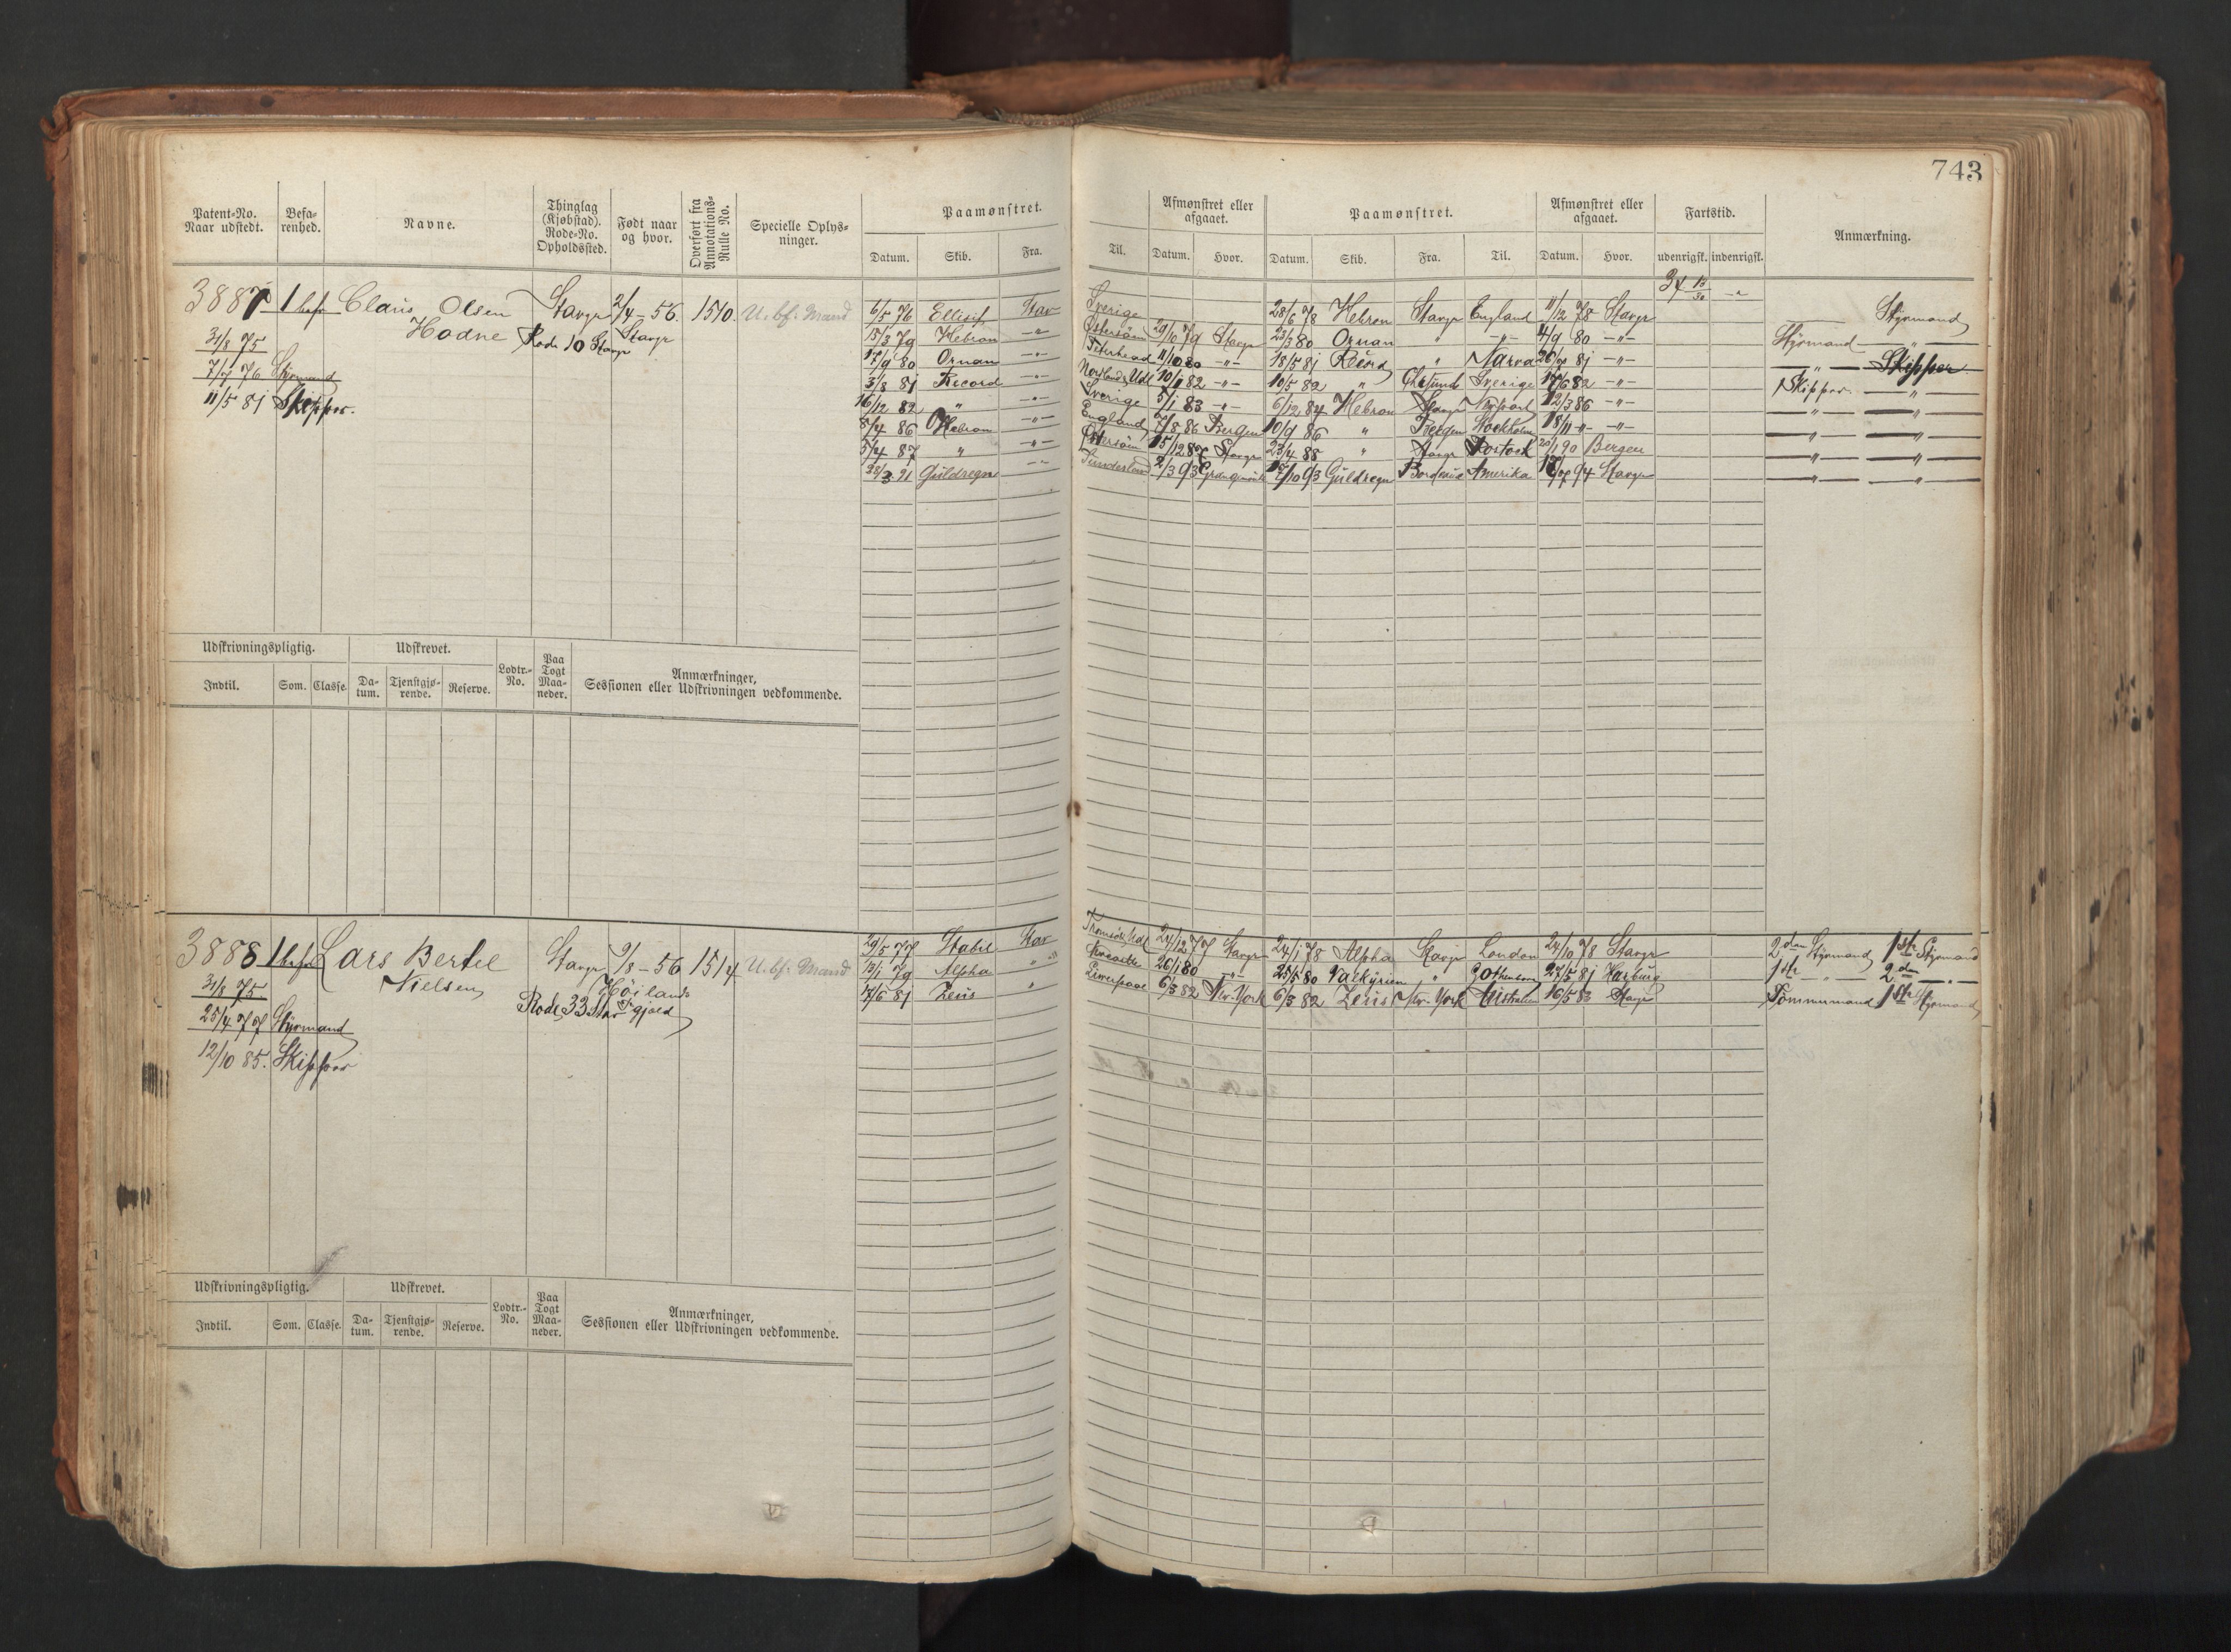 743
Patent=No. Naar udstedt. Befa= renhed. Navne. Thinglag (Kjøbstad). Rode=No. Opholdssted. Født naar og hvor. Overført fra Annotations= Rulle No. Specielle Oplys= ninger. Paamønstret. Afmønstret eller afgaaet. Paamønstret. Afmønstret eller afgaaet. Fartstid. Anmærkning.
Datum. Skib. Fra. Til. Datum. Hvor. Datum. Skib. Fra. Til. Datum. Hvor. udenrigsk. indenrigsk.
3887 1 bef Claus Olsen Hodne Stavgr 2/4 - 56. 1510. U. bf. Mand
Rode 10 Stavgr Stavgr
31/8 75
7/7 76 Styrmand
11/5 81 Skipper.
6/5 76 Ellisif Stav Sverige 28/6 78 Hebron Stavgr England 11/12 78 Stavgr Styrmand
15/3 79 Hebron -"- Østersøen 29/10 79 Stavgr 23/3 80 Ornan " -"- 4/9 80 -"- Styrmand -"-
17/9 80 Ornan -"- Peterhead 11/10 80 -"- 18/5 81 Record " Narva 81 -"- -"- Skipper
3/8 81 Record -"- 82 -"- 10/5 82 " Chrsund Sverige 17/6 82 -"- Skipper. -"-
16/12 82 " -"- Sverige 5/1 83 -"- 6/12 84 Hebron Stavgr 12/3 86 -"- -"- -"-
8/4 86 Hebron -"- England 7/8 86 Bergen 10/9 86 " Bergen Stockholm 18/11 -"- -"- -"- -"-
5/4 87 " -"- Østersøen 15/12 87 Stavgr 23/4 88 " Stavgr Rostock 90 Bergen -"- -"-
91 Guldregn -"- Sunderland 2/3 93 Grangemouth 93 Guldregn Bordeaux Amerika 94 Stavgr -"- -"-
Udskrivningspligtig. Udskrevet. Lodtr.= No. Paa Togt Maa= neder. Anmærkninger, Sessionen eller Udskrivningen vedkommende.
Indtil. Som. Classe. Da= tum. Tjenstgjø= rende. Reserve.
3888 1 bef Lars Bertel Nielsen Stavgr 9/8 - 56 1514 U. bf. Mand
Høiland
Rode 33 Stav
31/8 75.
25/4 77 Styrmand
12/10 85. Skipper
29/5 77 Stabil Stav 24/12 77 Stavgr 24/1 78 Alpha Stavgr London 24/10 78 Stavgr 2den Styrmand 1ste Styrmand
79 Alpha " 26/1 80 -"- 25/5 80 Valkyrien " Gothenborg 27/5 81 Harburg 1ste -"- 2den -"-
17/6 81 Zeus " Liverpool 6/3 82 Nw. York 6/3 82 Zeus Nw. York Australien 16/5 83 Stavgr Tømmermand 1ste Styrmand
Udskrivningspligtig. Udskrevet. Lodtr.= No. Paa Togt Maa= neder. Anmærkninger, Sessionen eller Udskrivningen vedkommende.
Indtil. Som. Classe. Da= tum. Tjenstgjø= rende. Reserve.